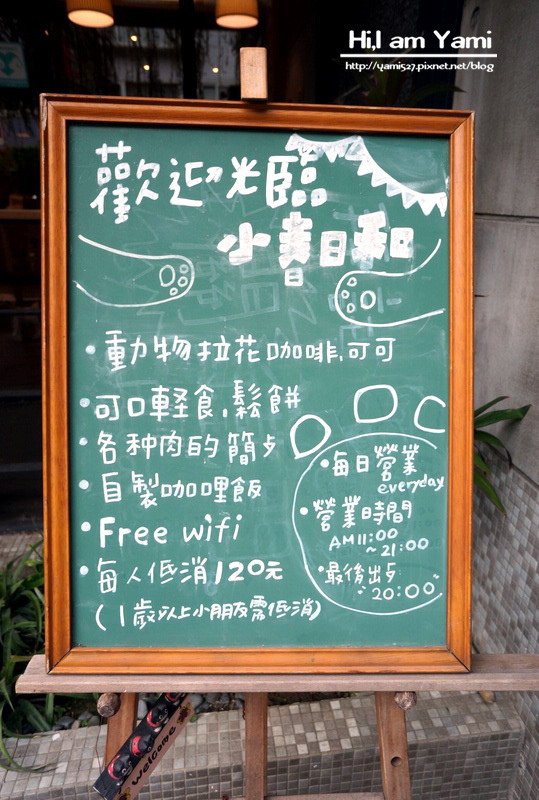 Hi,I am Yami
http://yami527.pixnet.net/blog
歡迎光臨
小春日和
•動物拉花咖啡、可可
•可口輕食、鬆餅
•各种肉的簡歺
•自製咖哩飯
•Free wifi
•每人低消120元
(1歲以上小朋友需低消)
•每日營業
everyday
•營業時間
AM11:00
~21:00
•最後出歺
"20:00"
welcome